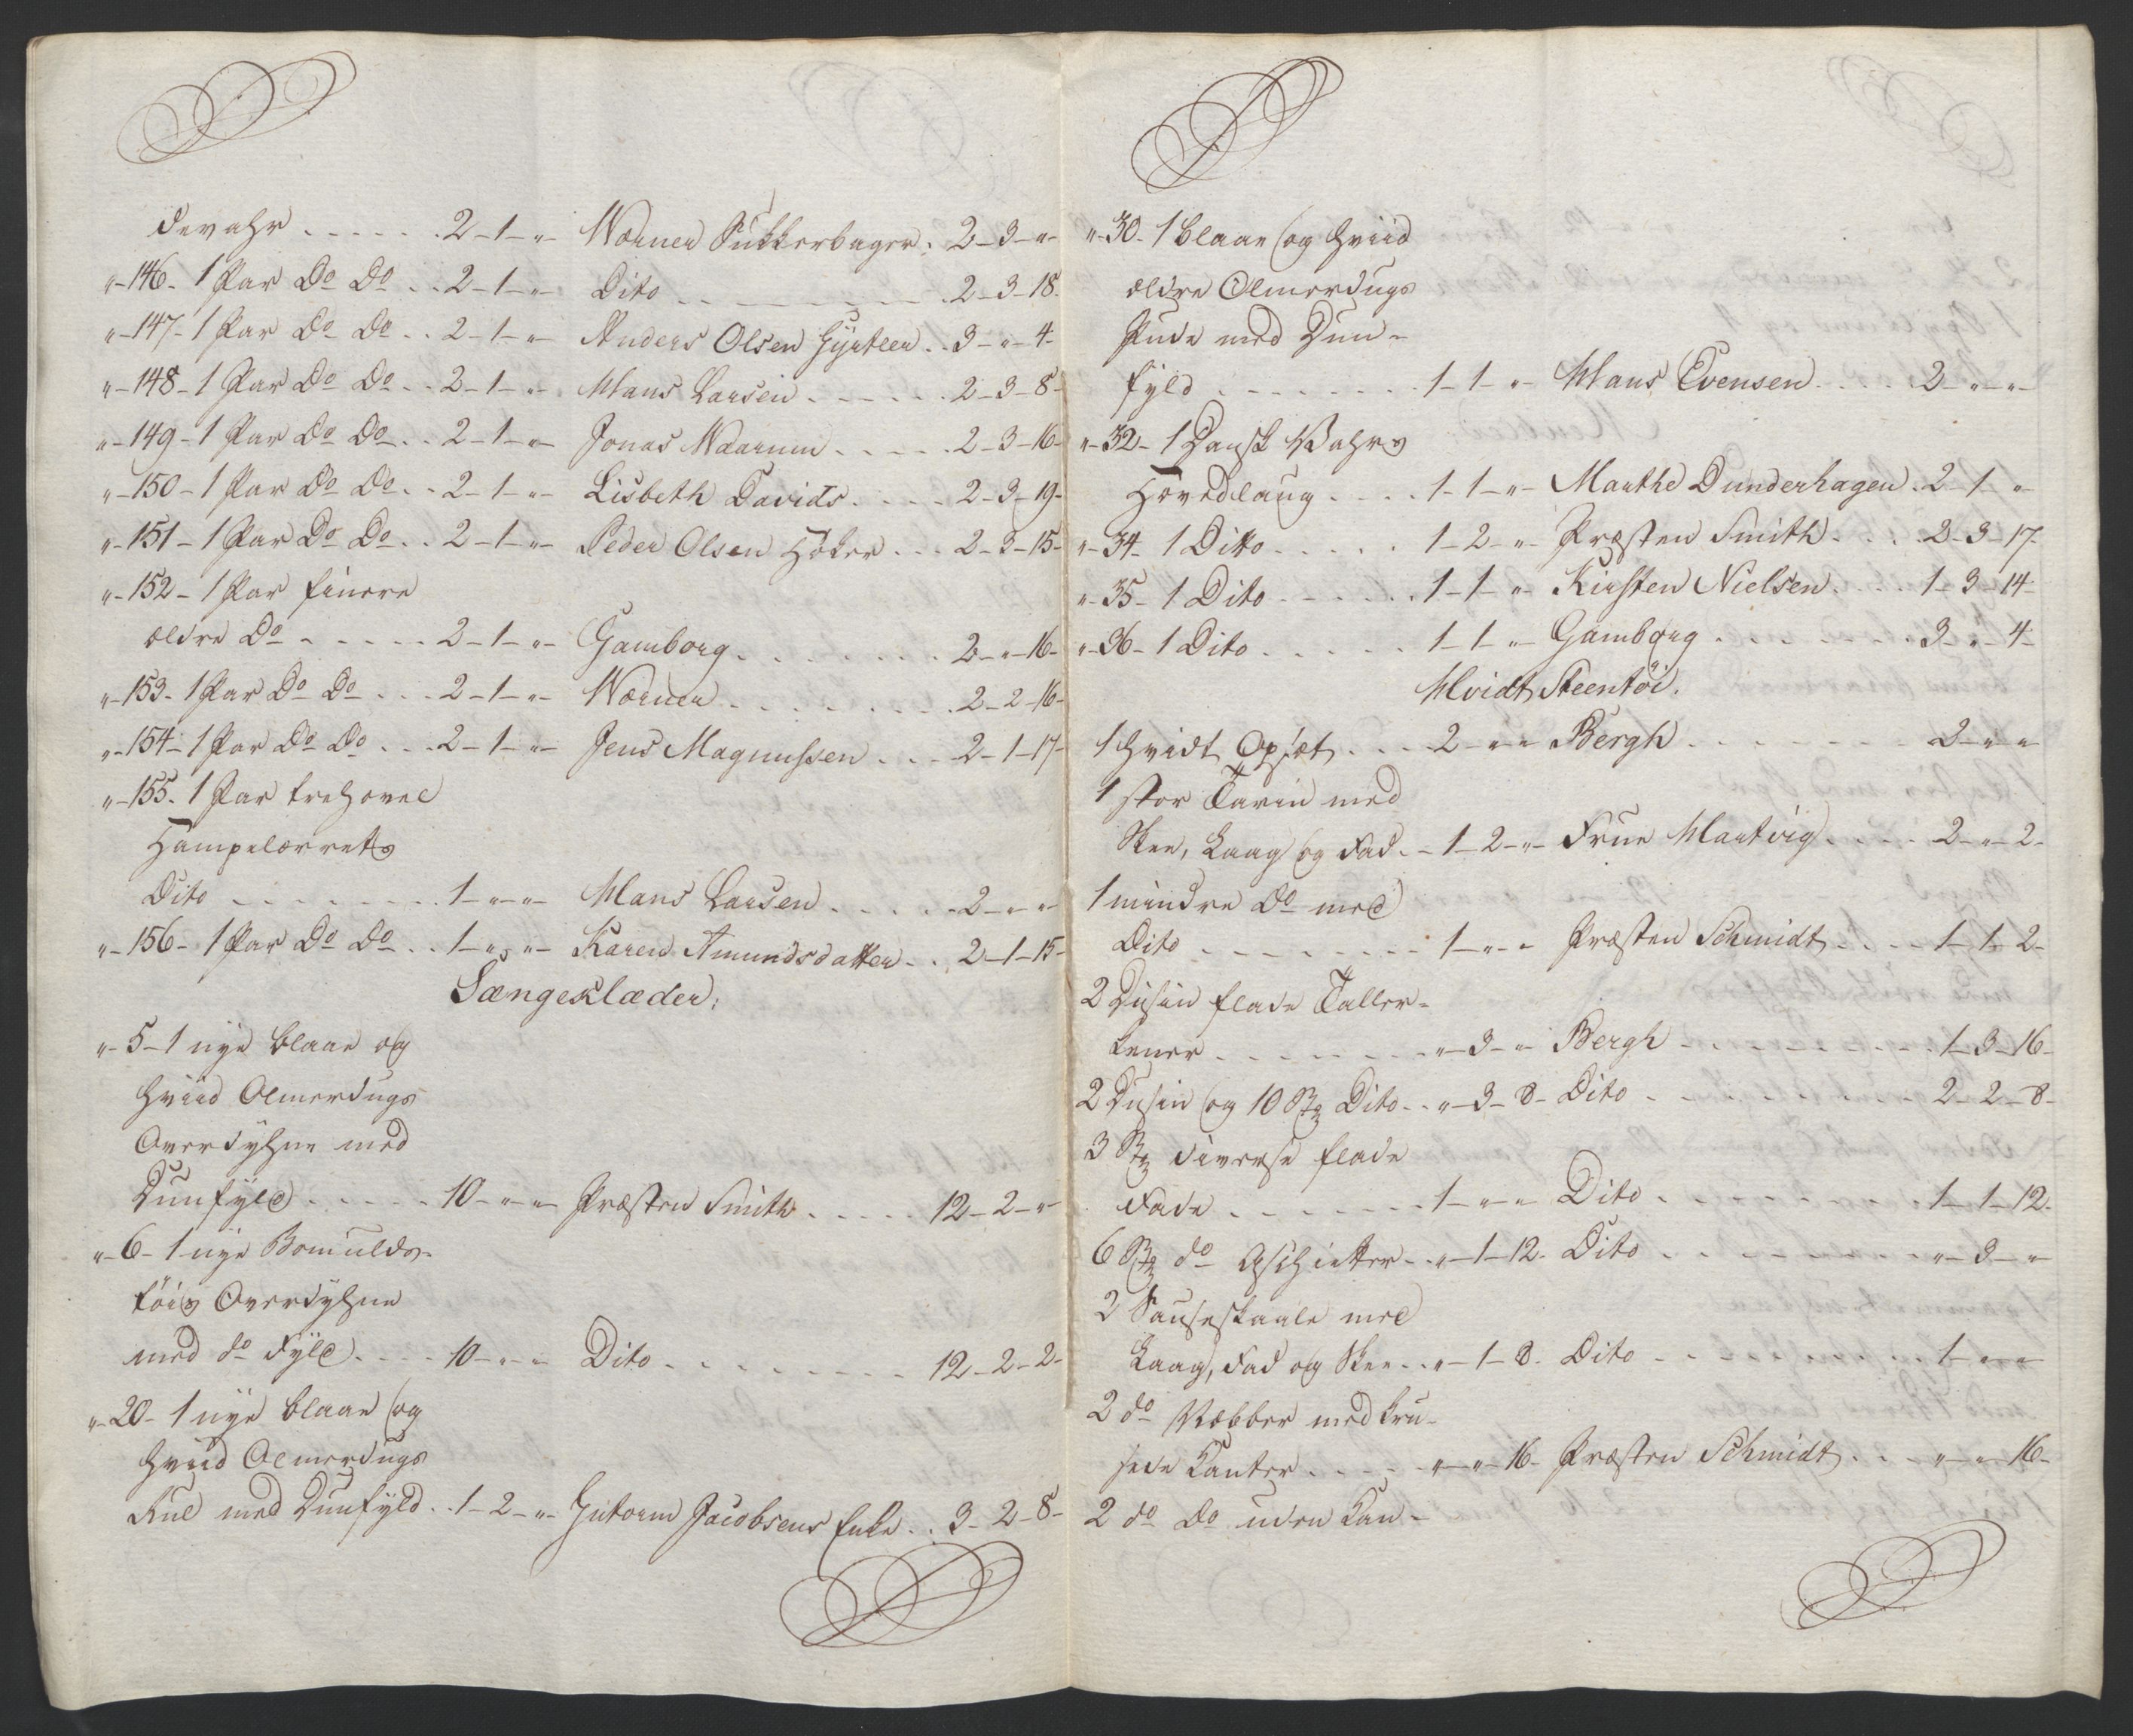 devahr . . . . . 2-1-"- Wærner Sukkerbager . 2-3-"-
"-146- 1 Par Do Do . . 2-1-"- Dito . . . . . . . 2-3-18-
"-147- 1 Par Do Do . . 2-1-"- Anders Olsen Gyrtler . . 3-"-4-
"-148- 1 Par Do Do . . 2-1-"- Hans Larsen . . . . . . 2-3-8-
"-149- 1 Par Do Do . . 2-1-"- Jonas Waarum . . . . . 2-3-16-
"-150- 1 Par Do Do . . 2-1-"- Lisbeth Davids . . . . 2-3-19-
"-151- 1 Par Do Do . . 2-1-"- Peder Olsen Høker . . . 2-3-15-
"-152- 1 Par finere
ældre Do . . . . . 2-1-"- Gamborg . . . . . . . 2-"-16-
"-153- 1 Par Do Do . . . 2-1-"- Wærner . . . . . . . 2-2-16-
"-154- 1 Par Do Do . . . 2-1-"- Jens Magnussen . . . 2-1-17-
"-155- 1 Par trehovel
Hampelærrets
Dito . . . . . . . . 1-"-"- Hans Larsen . . . . . 2-"-"
"-156- 1 Par Do Do . . 1-"-"- Karen Amundsdatter . . 2-1-15-
Sængeklæder;
"-5- 1 nye blaae og
hviid Olmerdugs
Overdyhne med
Dunfyld . . . . . 10-"-"- Præsten Smith . . . . . 12-2-"-
"-6- 1 nye Bomulds-
töis Overdyhne
med do Fyld . . . . 10-"-"- Dito . . . . . . . 12-2-2-
"-20- 1 nye blaae og
hviid Olmerdugs
Kul med Dunfyld . . 1-2-"- Gutorm Jacobsens Enke . . 3-2-8-
"-30- 1 blaae og hviid
ældre Olmerdugs
Pude med Dun-
fyld . . . . . . . 1-1-"- Hans Evensen . . . . . 2-"-"-
"-32- 1 Dansk Vahrs
Hovedlaug . . . . 1-1-"- Marthe Dunderhagen . 2-1-"-
"-34- 1 Ditto . . . . . 1-2-"- Præsten Smith . . . . 2-3-17-
"-35- 1 Dito . . . . . . 1-1-"- Kirsten Nielsen . . . . 1-3-14-
"-36- 1 Dito . . . . . . 1-1-"- Gamborg . . . . . . . 3-"-4-
Hvidt Steentöi.
1 hvidt Opsæt . . . 2-"-"- Bergh . . . . . . . 3-"-"
1 stor Tarin med
Skee, Laag og Fad . . 1-2-"- Frue Hartvig . . . . . 2-"-2-
1 mindre Do med
Dito . . . . . . . . 1-"-"- Præsten Schmidt . . . . 1-1-2-
2 Dusin flade Taller-
kener . . . . . . . "-3-"- Bergh . . . . . . . . . 1-3-16-
2 Dusin og 10 Stz Dito . . "-3-8- Dito . . . . . . . . 2-2-8-
3 Stz diverse flade
Fade . . . . . . . 1-"-"- Dito . . . . . . . . . 1-1-12-
6 Stz do Aschietter . . "-1-12- Dito . . . . . . . . "-3-"-
2 Sauseskaale med
Laag, Fad og Skee . . "-1-8- Dito . . . . . . . . 1-"-"
2 do Næbber med kru-
sede Kanter . . . . . "-"-16- Præsten Schmidt . . . "-"-16-
2 do Do uden Kan-